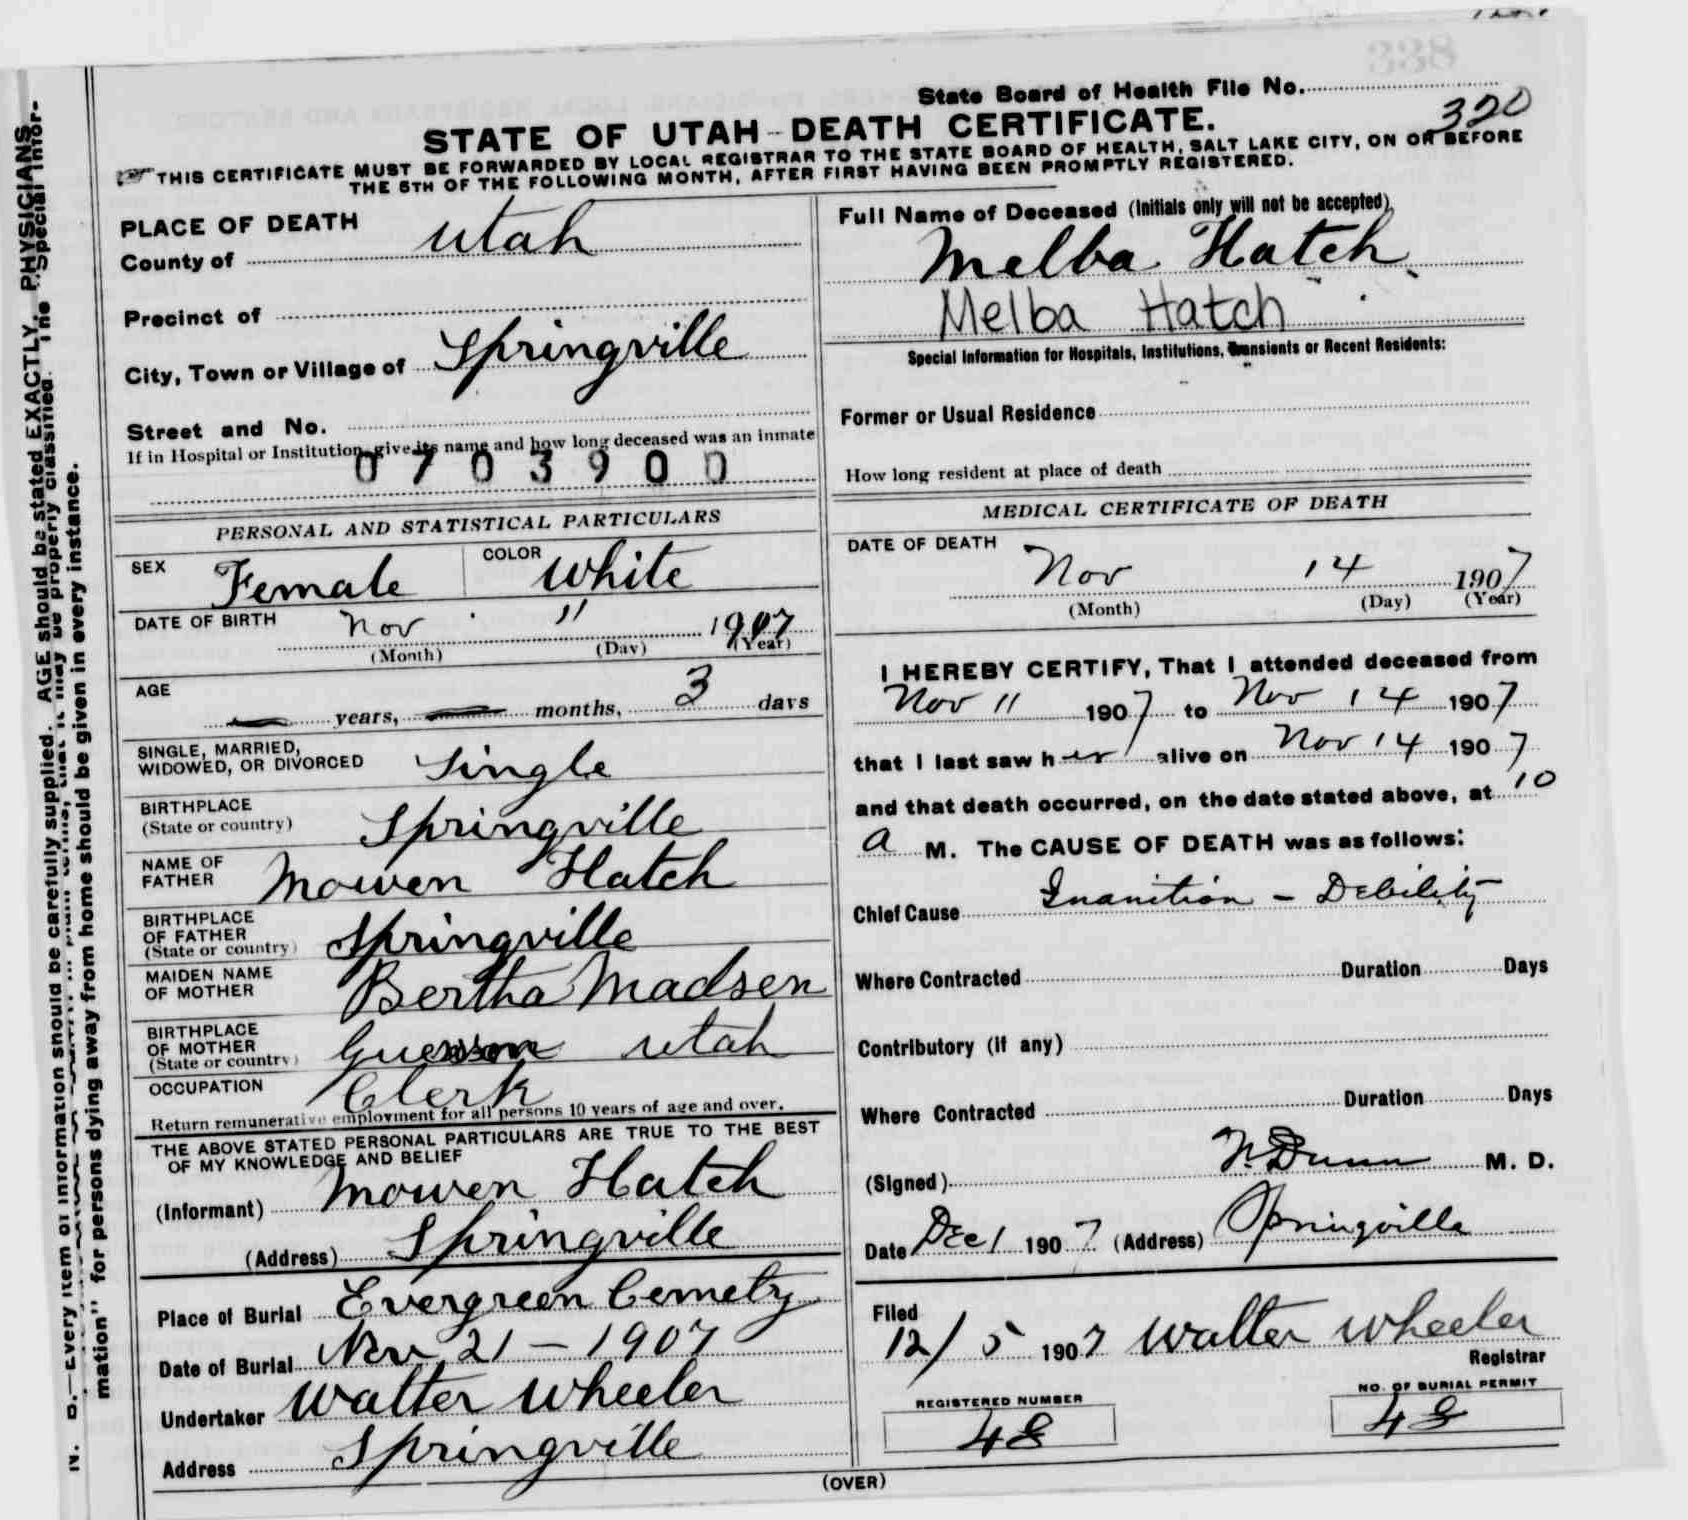 338
State Board of Health File No.
320
STATE OF UTAH - DEATH CERTIFICATE.
THIS CERTIFICATE MUST BE FORWARDED BY LOCAL REGISTRAR TO THE STATE BOARD OF HEALTH, SALT LAKE CITY, ON OR BEFORE
THE 5TH OF THE FOLLOWING MONTH, AFTER FIRST HAVING BEEN PROMPTLY REGISTERED.
PLACE OF DEATH
County of Utah
Precinct of
City, Town or Village of Springville
Street and No.
If in Hospital or Institution, give its name and how long deceased was an inmate
0703900
PERSONAL AND STATISTICAL PARTICULARS
SEX Female COLOR White
DATE OF BIRTH Nov 11 1907
(Month) (Day) (Year)
AGE
years, months, 3 days
SINGLE, MARRIED,
WIDOWED, OR DIVORCED Single
BIRTHPLACE
(State or country) Springville
NAME OF
FATHER Mowen Hatch
BIRTHPLACE
OF FATHER
(State or country) Springville
MAIDEN NAME
OF MOTHER Bertha Madsen
BIRTHPLACE
OF MOTHER
(State or country) Utah
OCCUPATION Clerk
Return remunerative employment for all persons 10 years of age and over.
THE ABOVE STATED PERSONAL PARTICULARS ARE TRUE TO THE BEST
OF MY KNOWLEDGE AND BELIEF
(Informant) Mowen Hatch
(Address) Springville
Place of Burial Evergreen Cemety
Date of Burial Nov 21 - 1907
Undertaker Walter Wheeler
Address Springville
Full Name of Deceased (Initials only will not be accepted)
Melba Hatch
Melba Hatch
Special Information for Hospitals, Institutions, Transients or Recent Residents:
Former or Usual Residence
How long resident at place of death
MEDICAL CERTIFICATE OF DEATH
DATE OF DEATH
Nov 14 1907
(Month) (Day) (Year)
I HEREBY CERTIFY, That I attended deceased from
Nov 11 1907 to Nov 14 1907
that I last saw her alive on Nov 14 1907
and that death occurred, on the date stated above, at 10
a M. The CAUSE OF DEATH was as follows:
Chief Cause Inanition - Debility
Where Contracted Duration Days
Contributory (if any)
Where Contracted Duration Days
(Signed) N. Dunn M. D.
Date Dec 1 1907 (Address) Springville
Filed
12/5 1907 Walter Wheeler
Registrar
REGISTERED NUMBER
48
NO. OF BURIAL PERMIT
48
(OVER)
N. B.—Every item of information should be carefully supplied. AGE should be stated EXACTLY. PHYSICIANS
that it may be properly classified. The "Special Infor-
mation" for persons dying away from home should be given in every instance.